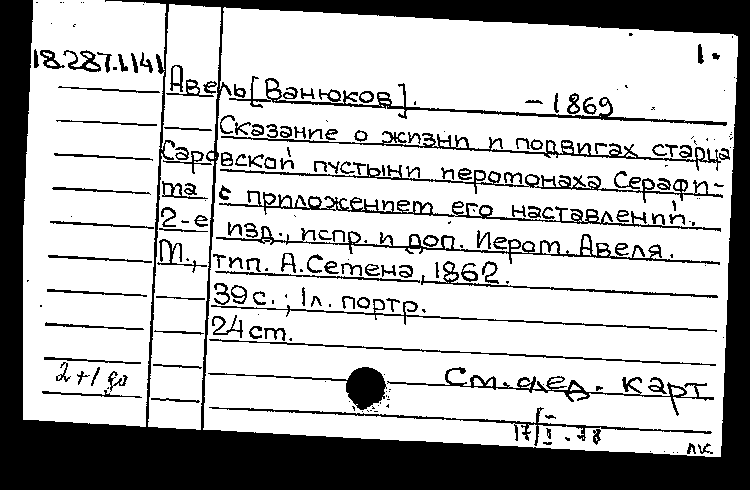 1.
18.287.1141
Авель [Ванюков]. - 1869
Сказание о жизни и подвигах старца
Саровской пустыни иеромонаха Серафи-
ма с приложением его наставлений.
2-е изд., испр. и доп. Иером. Авеля.
М., тип. А. Семена, 1862.
39 с.; 1 л. портр.
24 см.
2+1 до
См. след. карт
17/I - 78